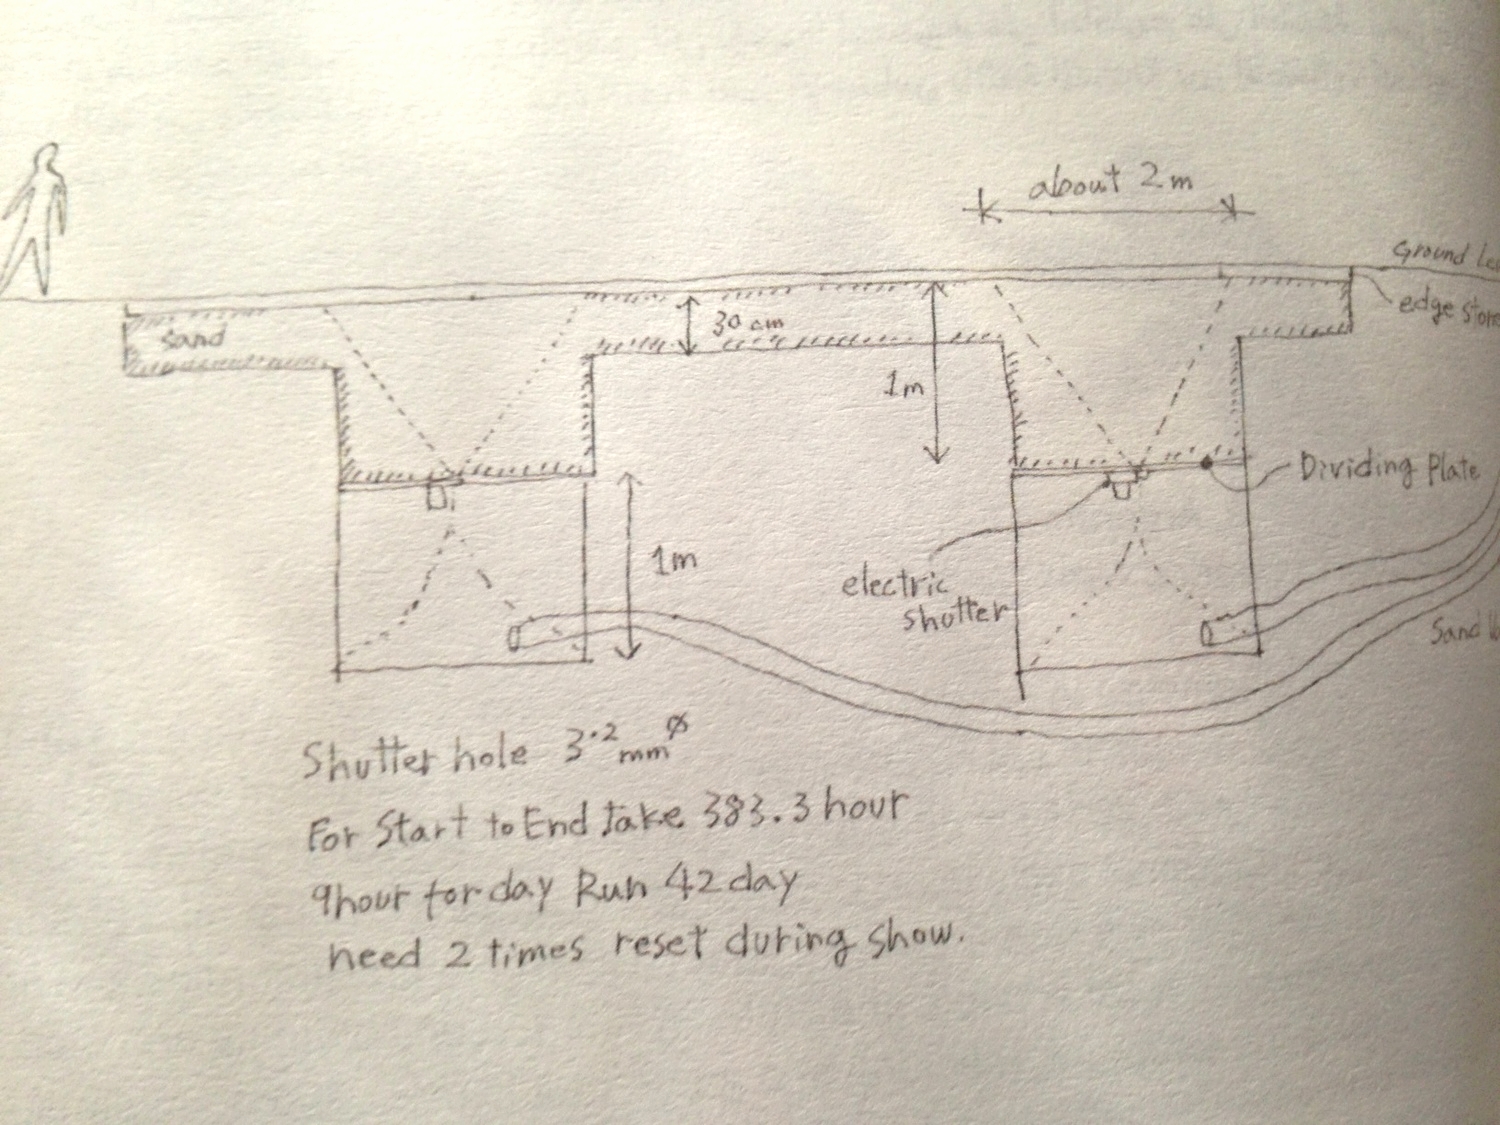 about 2m
Ground
edge
sand
30 cm
1m
Dividing Plate
1m
electric
shutter
Sand
Shutter hole 3.2mmφ
For Start to End take 383.3 hour
9hour for day Run 42 day
need 2 times reset during show.